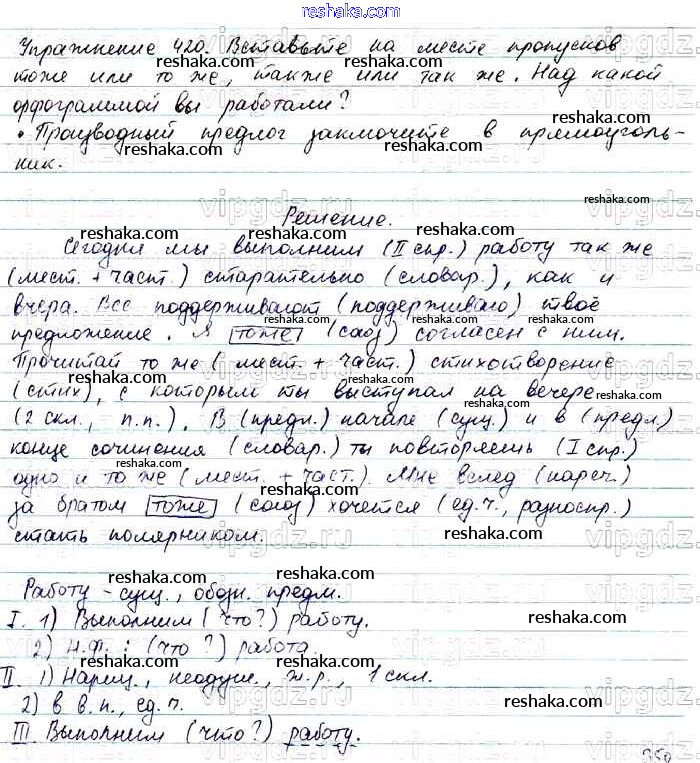 reshaka.com
Упражнение 420. Вставьте на месте пропусков
тоже или то же, также или так же. Над какой
орфограммой вы работали?
• Производный предлог заключите в прямоуголь-
ник.
Решение.
Сегодня мы выполним (II спр.) работу так же
(мест. + част.) старательно (словар.), как и
вчера. Все поддерживают (поддерживаю) твоё
предложение. Я тоже (союз) согласен с ним.
Прочитай то же (мест. + част.) стихотворение
(стих), с которым ты выступал на вечере
(2 скл., п.п.). В (предл.) начале (сущ.) и в (предл.)
конце сочинения (словар.) ты повторяешь (I спр.)
одно и то же (мест. + част.). Мне вслед (нареч.)
за братом тоже (союз) хочется (ед.ч., разноспр.)
стать полярником.
Работу - сущ., обозн. предм.
I. 1) Выполним (что?) работу.
2) Н.Ф.: (что?) работа.
II 1) Нариц., неодуш., ж.р., 1 скл.
2) в В.п., ед.ч.
III. Выполним (что?) работу.